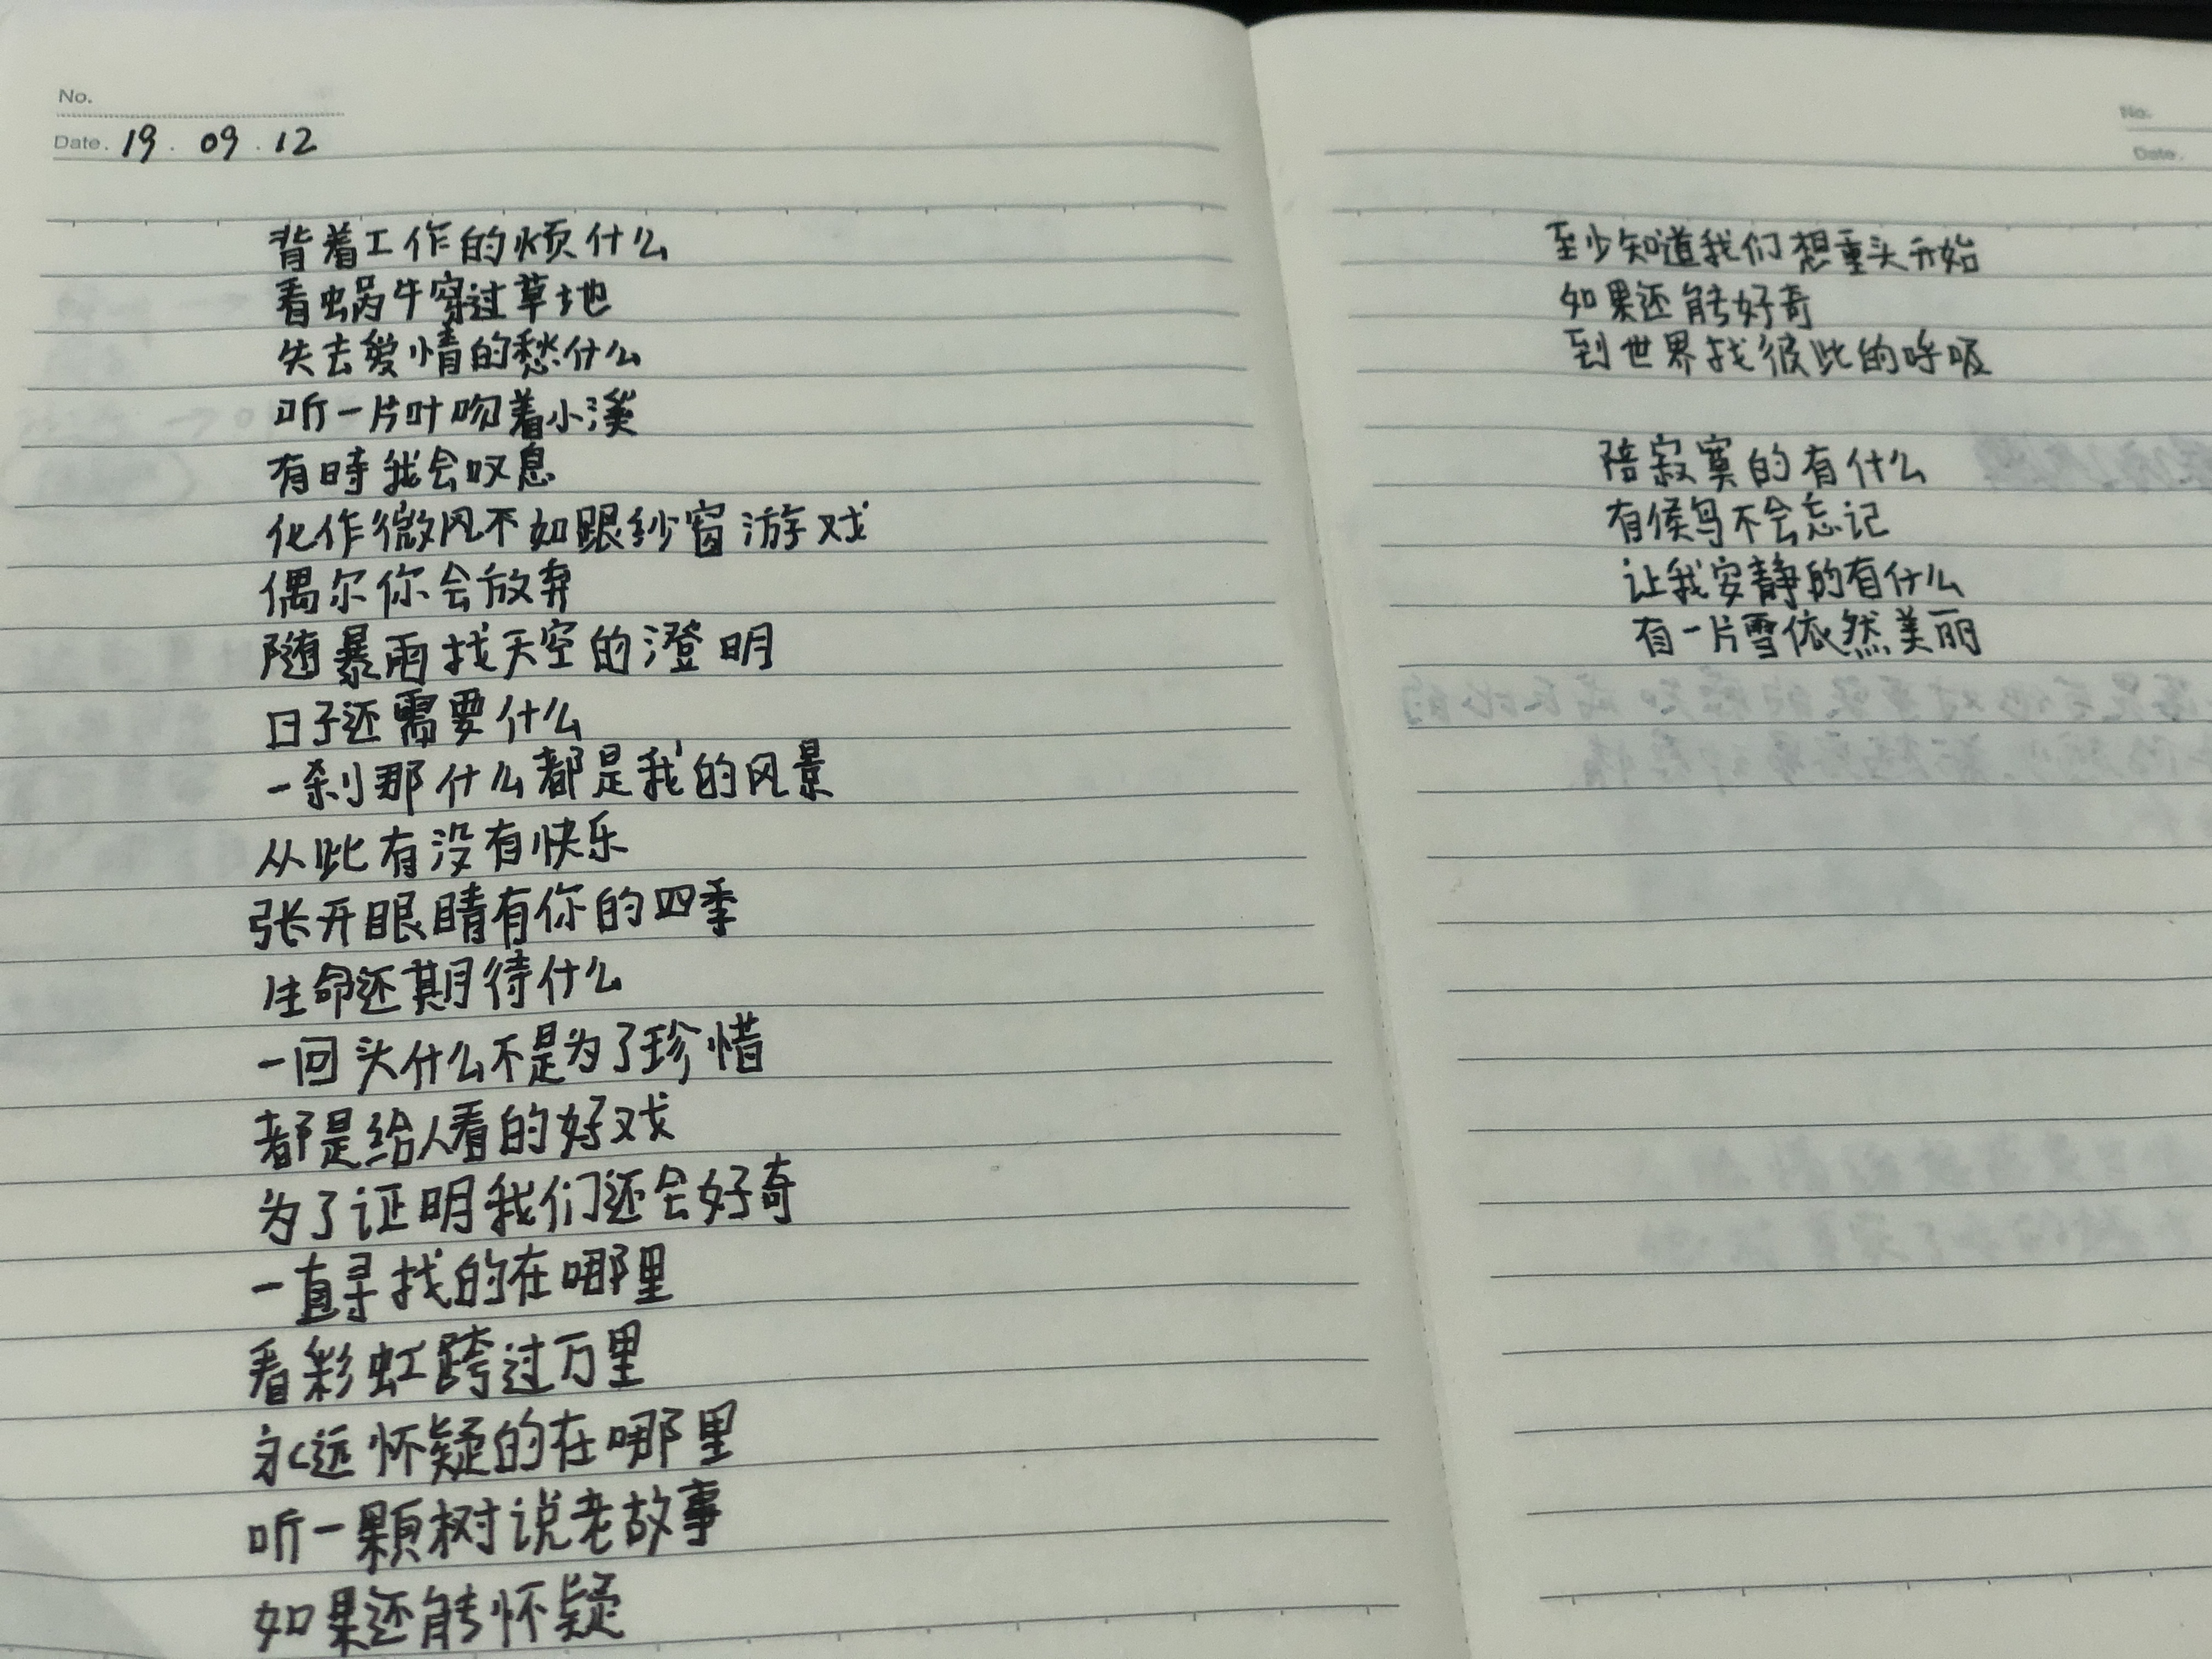 No.
Date. 19. 09. 12
背着工作的烦什么
看蜗牛穿过草地
失去爱情的愁什么
听一片叶吻着小溪
有時我会叹息
化作微风不如跟纱窗游戏
偶尔你会放弃
随暴雨找天空的澄明
日子还需要什么
一刹那什么都是我的风景
从此有没有快乐
张开眼睛有你的四季
生命还期待什么
一回头什么不是为了珍惜
都是给人看的好戏
为了证明我们还会好奇
一直寻找的在哪里
看彩虹跨过万里
永远怀疑的在哪里
听一颗树说老故事
如果还能怀疑
No.
Date.
至少知道我们想重头开始
如果还能好奇
到世界找彼此的呼吸
陪寂寞的有什么
有候鸟不会忘记
让我安静的有什么
有一片雪依然美丽